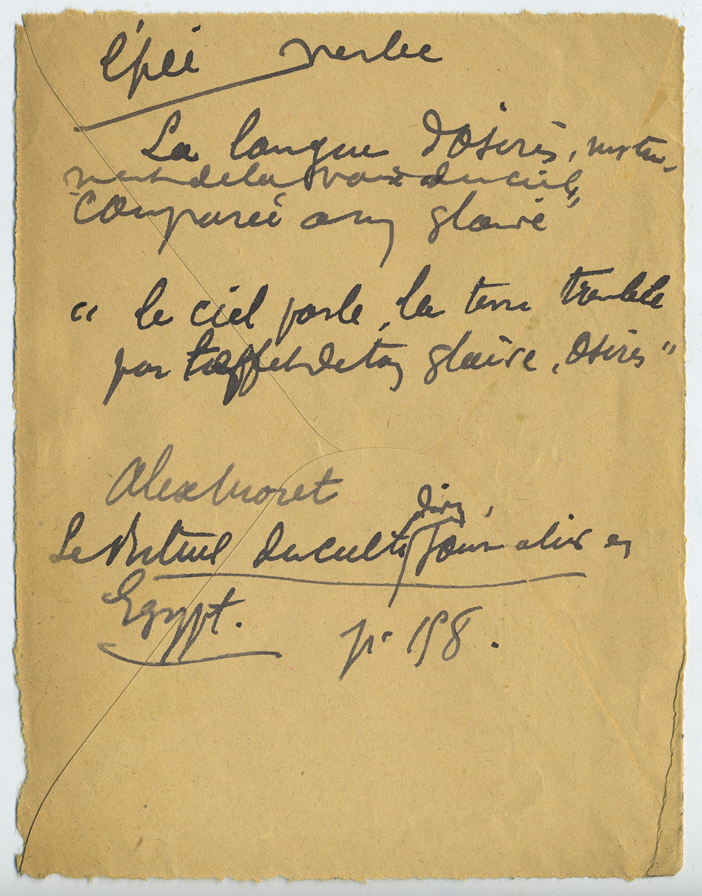 l'épée verbe
La langue d'Osiris, instru-
ment de la voix du ciel,
comparée à un glaive"
" le ciel parle, la terre tremble
par l'effet de ton glaive, Osiris"
Alex Moret
Le Rituel du culte divin Journalier en
Egypt.
p. 158.